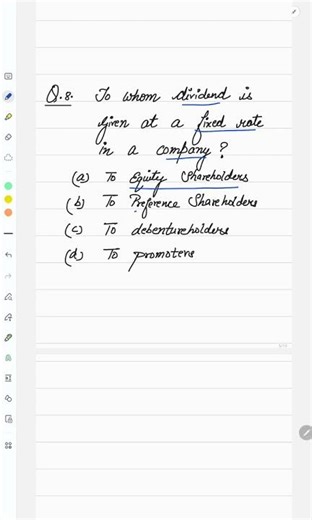 Q.8. To whom dividend is
given at a fixed rate
in a company?
(a) To Equity Shareholders
(b) To Preference Shareholders
(c) To debentureholders
(d) To promoters